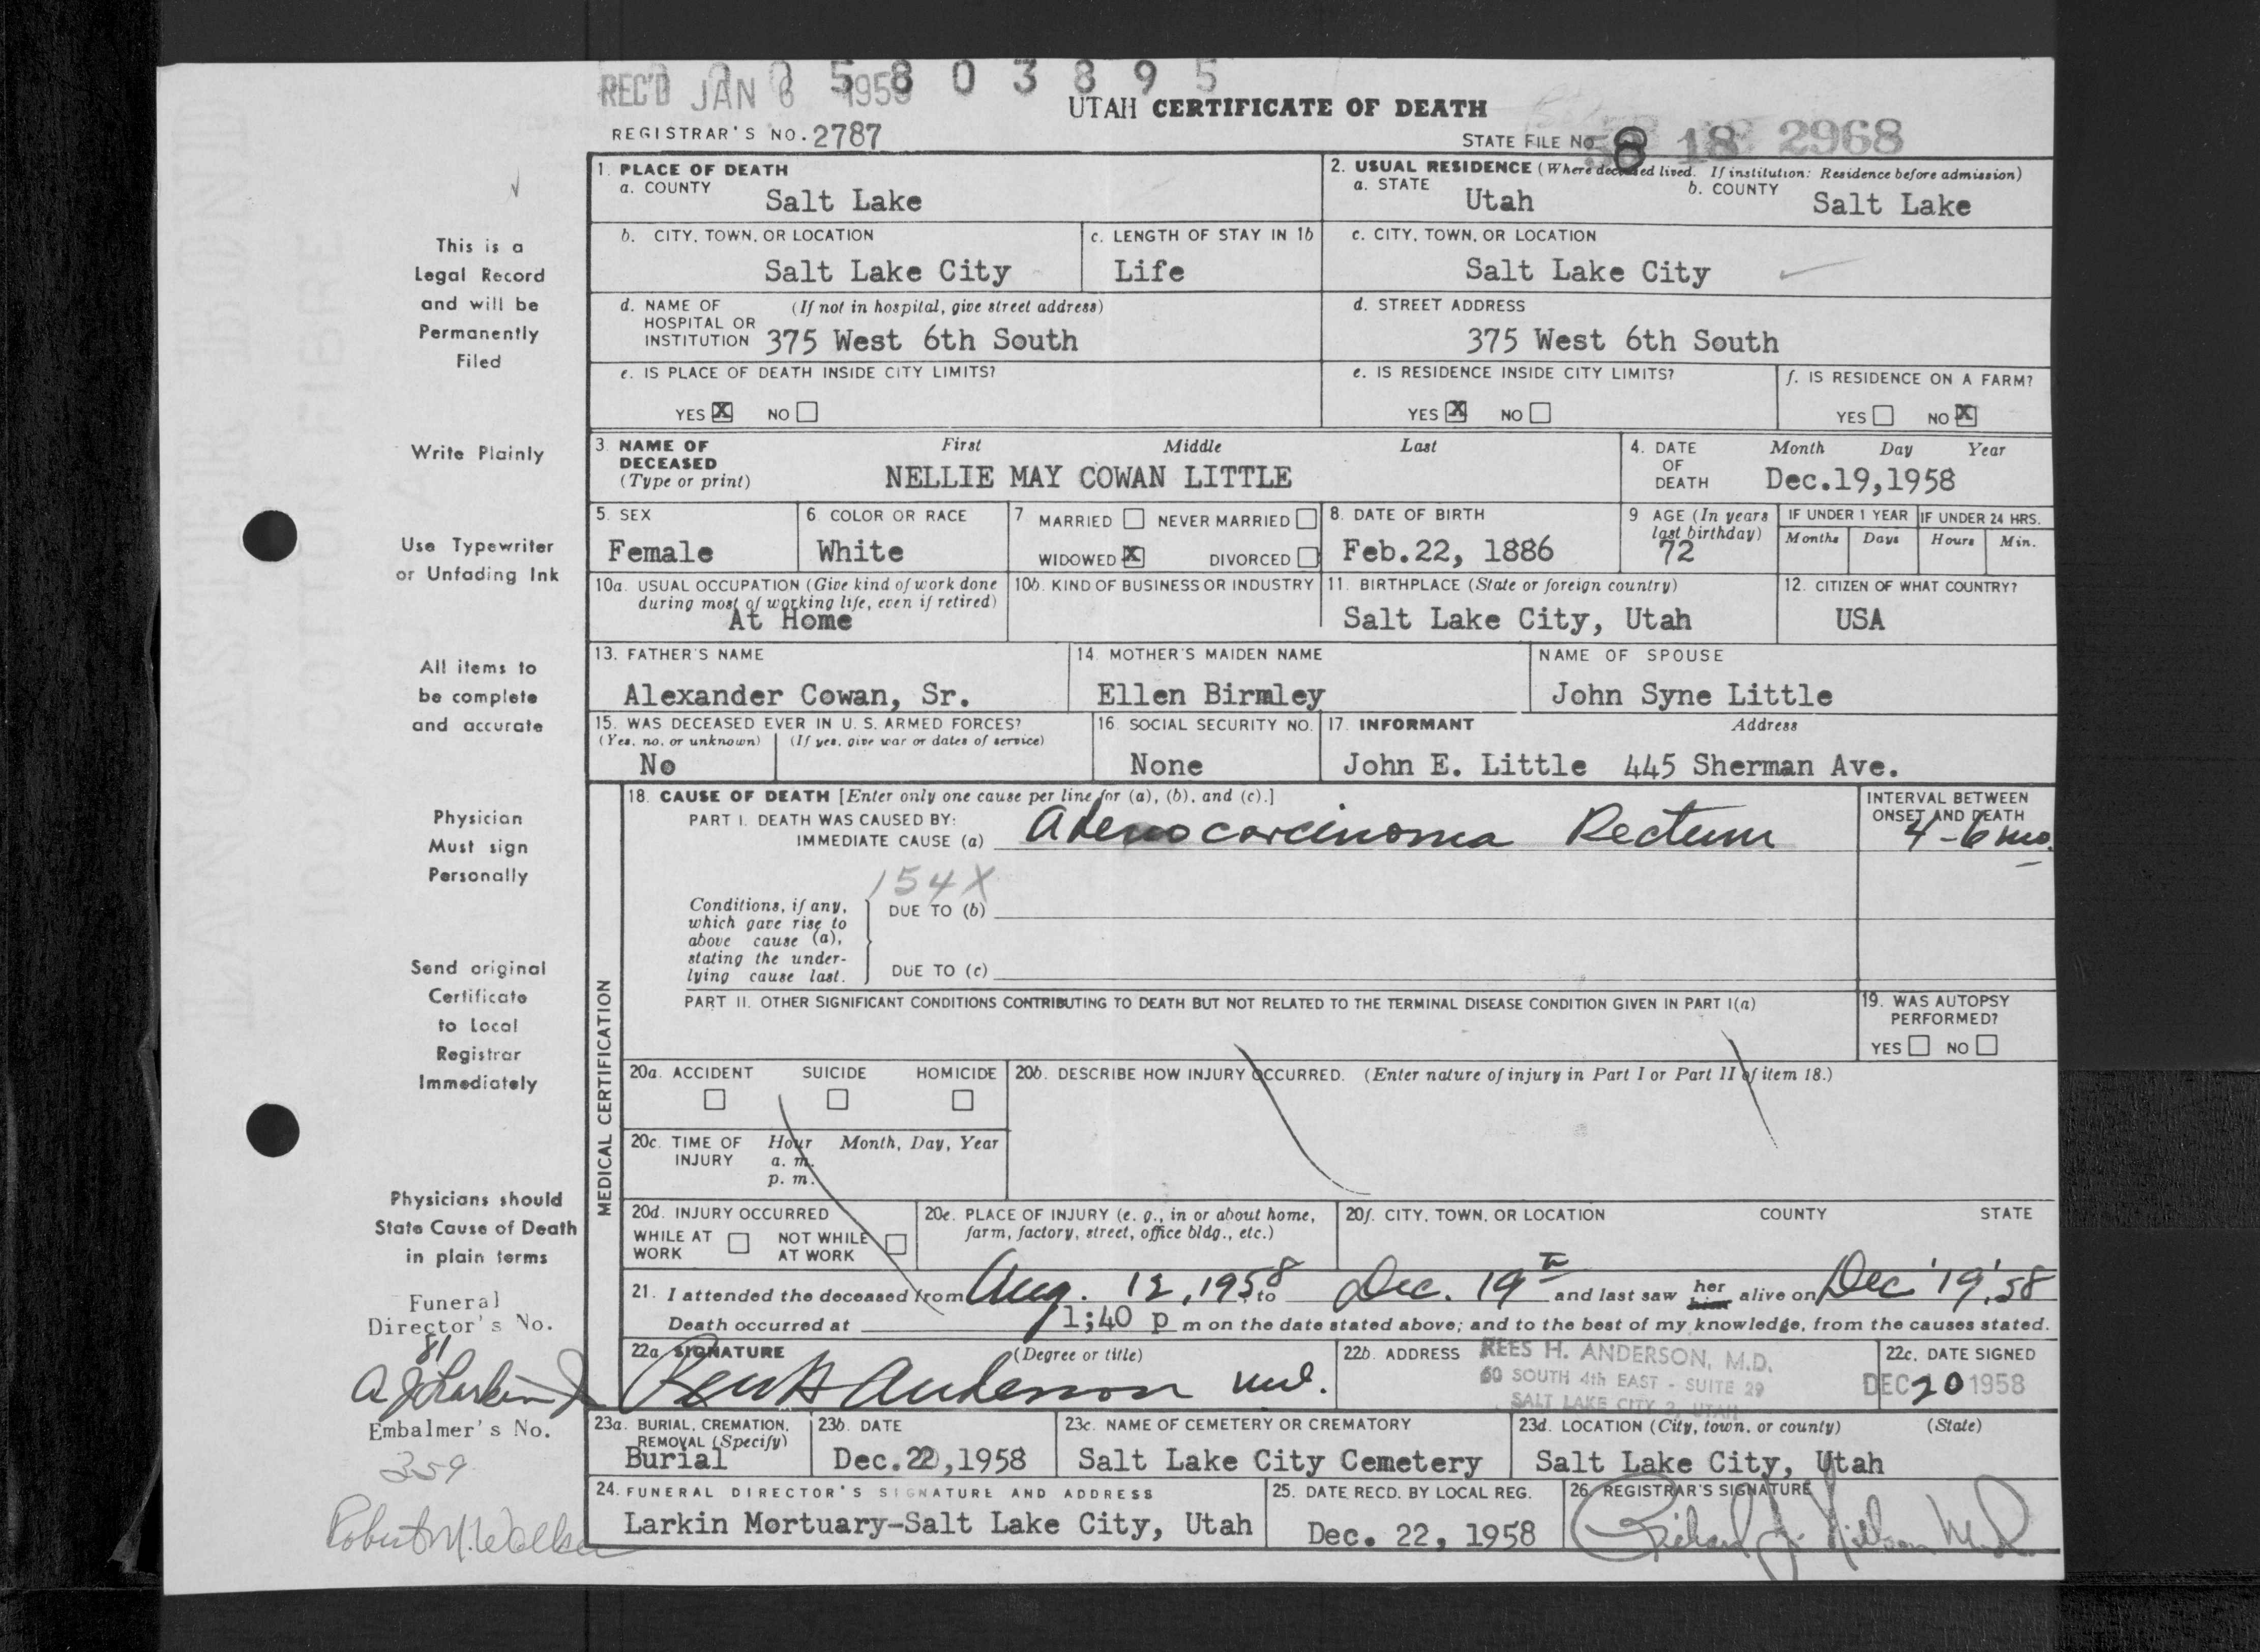 REC'D JAN 6 1959
5 8 0 3 8 9 5
UTAH CERTIFICATE OF DEATH
REGISTRAR'S NO. 2787
STATE FILE NO. 58 18 2968
1. PLACE OF DEATH
a. COUNTY Salt Lake
2. USUAL RESIDENCE (Where deceased lived. If institution: Residence before admission)
a. STATE Utah b. COUNTY Salt Lake
b. CITY, TOWN, OR LOCATION Salt Lake City
c. LENGTH OF STAY IN 1b Life
c. CITY, TOWN, OR LOCATION Salt Lake City
d. NAME OF HOSPITAL OR INSTITUTION (If not in hospital, give street address) 375 West 6th South
d. STREET ADDRESS 375 West 6th South
e. IS PLACE OF DEATH INSIDE CITY LIMITS?
YES X NO
e. IS RESIDENCE INSIDE CITY LIMITS?
YES X NO
f. IS RESIDENCE ON A FARM?
YES NO X
3. NAME OF DECEASED (Type or print) First Middle Last
NELLIE MAY COWAN LITTLE
4. DATE OF DEATH Month Day Year
Dec.19,1958
5. SEX Female
6. COLOR OR RACE White
7 MARRIED NEVER MARRIED
WIDOWED X DIVORCED
8. DATE OF BIRTH Feb.22, 1886
9 AGE (In years last birthday) 72
IF UNDER 1 YEAR Months Days
IF UNDER 24 HRS. Hours Min.
10a. USUAL OCCUPATION (Give kind of work done during most of working life, even if retired)
At Home
10b. KIND OF BUSINESS OR INDUSTRY
11. BIRTHPLACE (State or foreign country)
Salt Lake City, Utah
12. CITIZEN OF WHAT COUNTRY?
USA
13. FATHER'S NAME
Alexander Cowan, Sr.
14. MOTHER'S MAIDEN NAME
Ellen Birmley
NAME OF SPOUSE
John Syne Little
15. WAS DECEASED EVER IN U. S. ARMED FORCES?
(Yes, no, or unknown) (If yes, give war or dates of service)
No
16. SOCIAL SECURITY NO.
None
17. INFORMANT Address
John E. Little 445 Sherman Ave.
MEDICAL CERTIFICATION
18. CAUSE OF DEATH [Enter only one cause per line for (a), (b), and (c).]
PART I. DEATH WAS CAUSED BY:
IMMEDIATE CAUSE (a) Adenocarcinoma Rectum
INTERVAL BETWEEN ONSET AND DEATH
4-6 mo.
154X
Conditions, if any, which gave rise to above cause (a), stating the underlying cause last.
DUE TO (b)
DUE TO (c)
PART II. OTHER SIGNIFICANT CONDITIONS CONTRIBUTING TO DEATH BUT NOT RELATED TO THE TERMINAL DISEASE CONDITION GIVEN IN PART I(a)
19. WAS AUTOPSY PERFORMED?
YES NO
20a. ACCIDENT SUICIDE HOMICIDE
20b. DESCRIBE HOW INJURY OCCURRED. (Enter nature of injury in Part I or Part II of item 18.)
20c. TIME OF INJURY Hour Month, Day, Year
a. m.
p. m.
20d. INJURY OCCURRED
WHILE AT WORK NOT WHILE AT WORK
20e. PLACE OF INJURY (e. g., in or about home, farm, factory, street, office bldg., etc.)
20f. CITY, TOWN, OR LOCATION COUNTY STATE
21. I attended the deceased from Aug. 12, 1958 to Dec. 19th and last saw her him alive on Dec 19, '58
Death occurred at 1;40 p m on the date stated above; and to the best of my knowledge, from the causes stated.
22a. SIGNATURE (Degree or title)
Rees H Anderson M.D.
22b. ADDRESS REES H. ANDERSON, M.D.
60 SOUTH 4th EAST - SUITE 29
SALT LAKE CITY 2, UTAH
22c. DATE SIGNED
DEC 20 1958
23a. BURIAL, CREMATION, REMOVAL (Specify)
Burial
23b. DATE
Dec.22,1958
23c. NAME OF CEMETERY OR CREMATORY
Salt Lake City Cemetery
23d. LOCATION (City, town, or county) (State)
Salt Lake City, Utah
24. FUNERAL DIRECTOR'S SIGNATURE AND ADDRESS
Larkin Mortuary-Salt Lake City, Utah
25. DATE RECD. BY LOCAL REG.
Dec. 22, 1958
26. REGISTRAR'S SIGNATURE
This is a
Legal Record
and will be
Permanently
Filed
Write Plainly
Use Typewriter
or Unfading Ink
All items to
be complete
and accurate
Physician
Must sign
Personally
Send original
Certificate
to Local
Registrar
Immediately
Physicians should
State Cause of Death
in plain terms
Funeral
Director's No.
81
Embalmer's No.
359